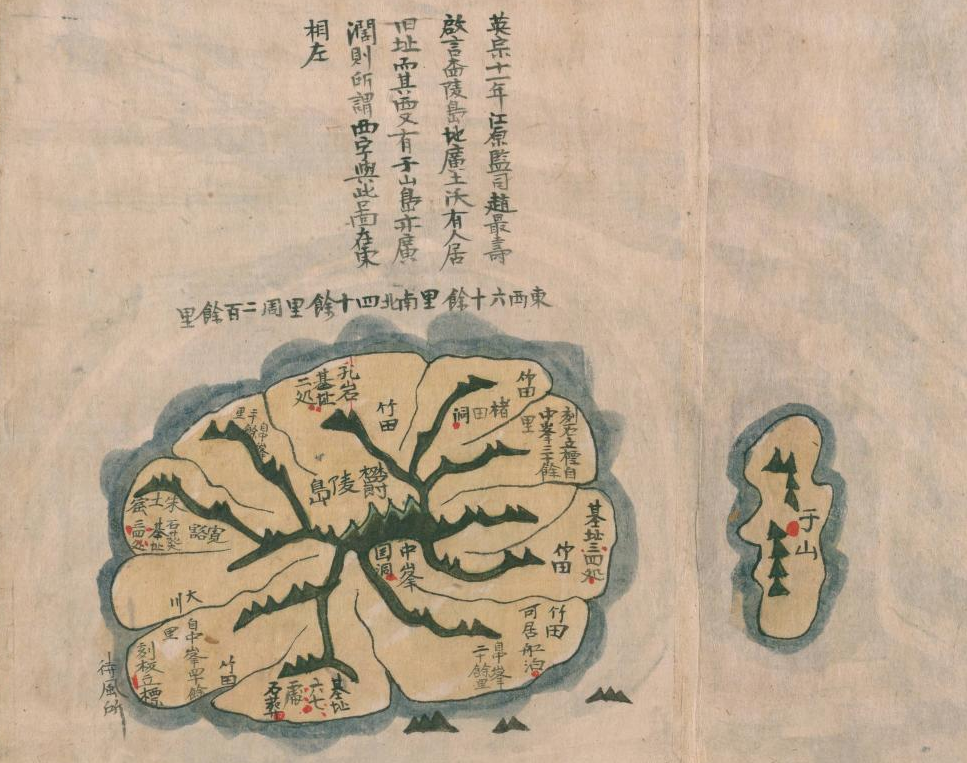 英宗十一年江原監司趙最壽
啟言陵島地廣土沃有人居
旧址而其西又有于山島亦廣
濶則所謂西字與此啚在東
相左
東西六十餘里南北四十餘里周二百餘里
欝陵島
中峯
国洞
于山
竹田
楮田洞
刻石立標自
中峯二十餘
里
竹田
孔岩
基址
二処
自中峯
二十餘
里
朱土窟
石葬
基址
三四処
大川
自中峯四十餘
里
刻板立標
待風所
竹田
基址
六七處
石葬
基址三四処
竹田
竹田
可居船泊
自中峯
二十餘里